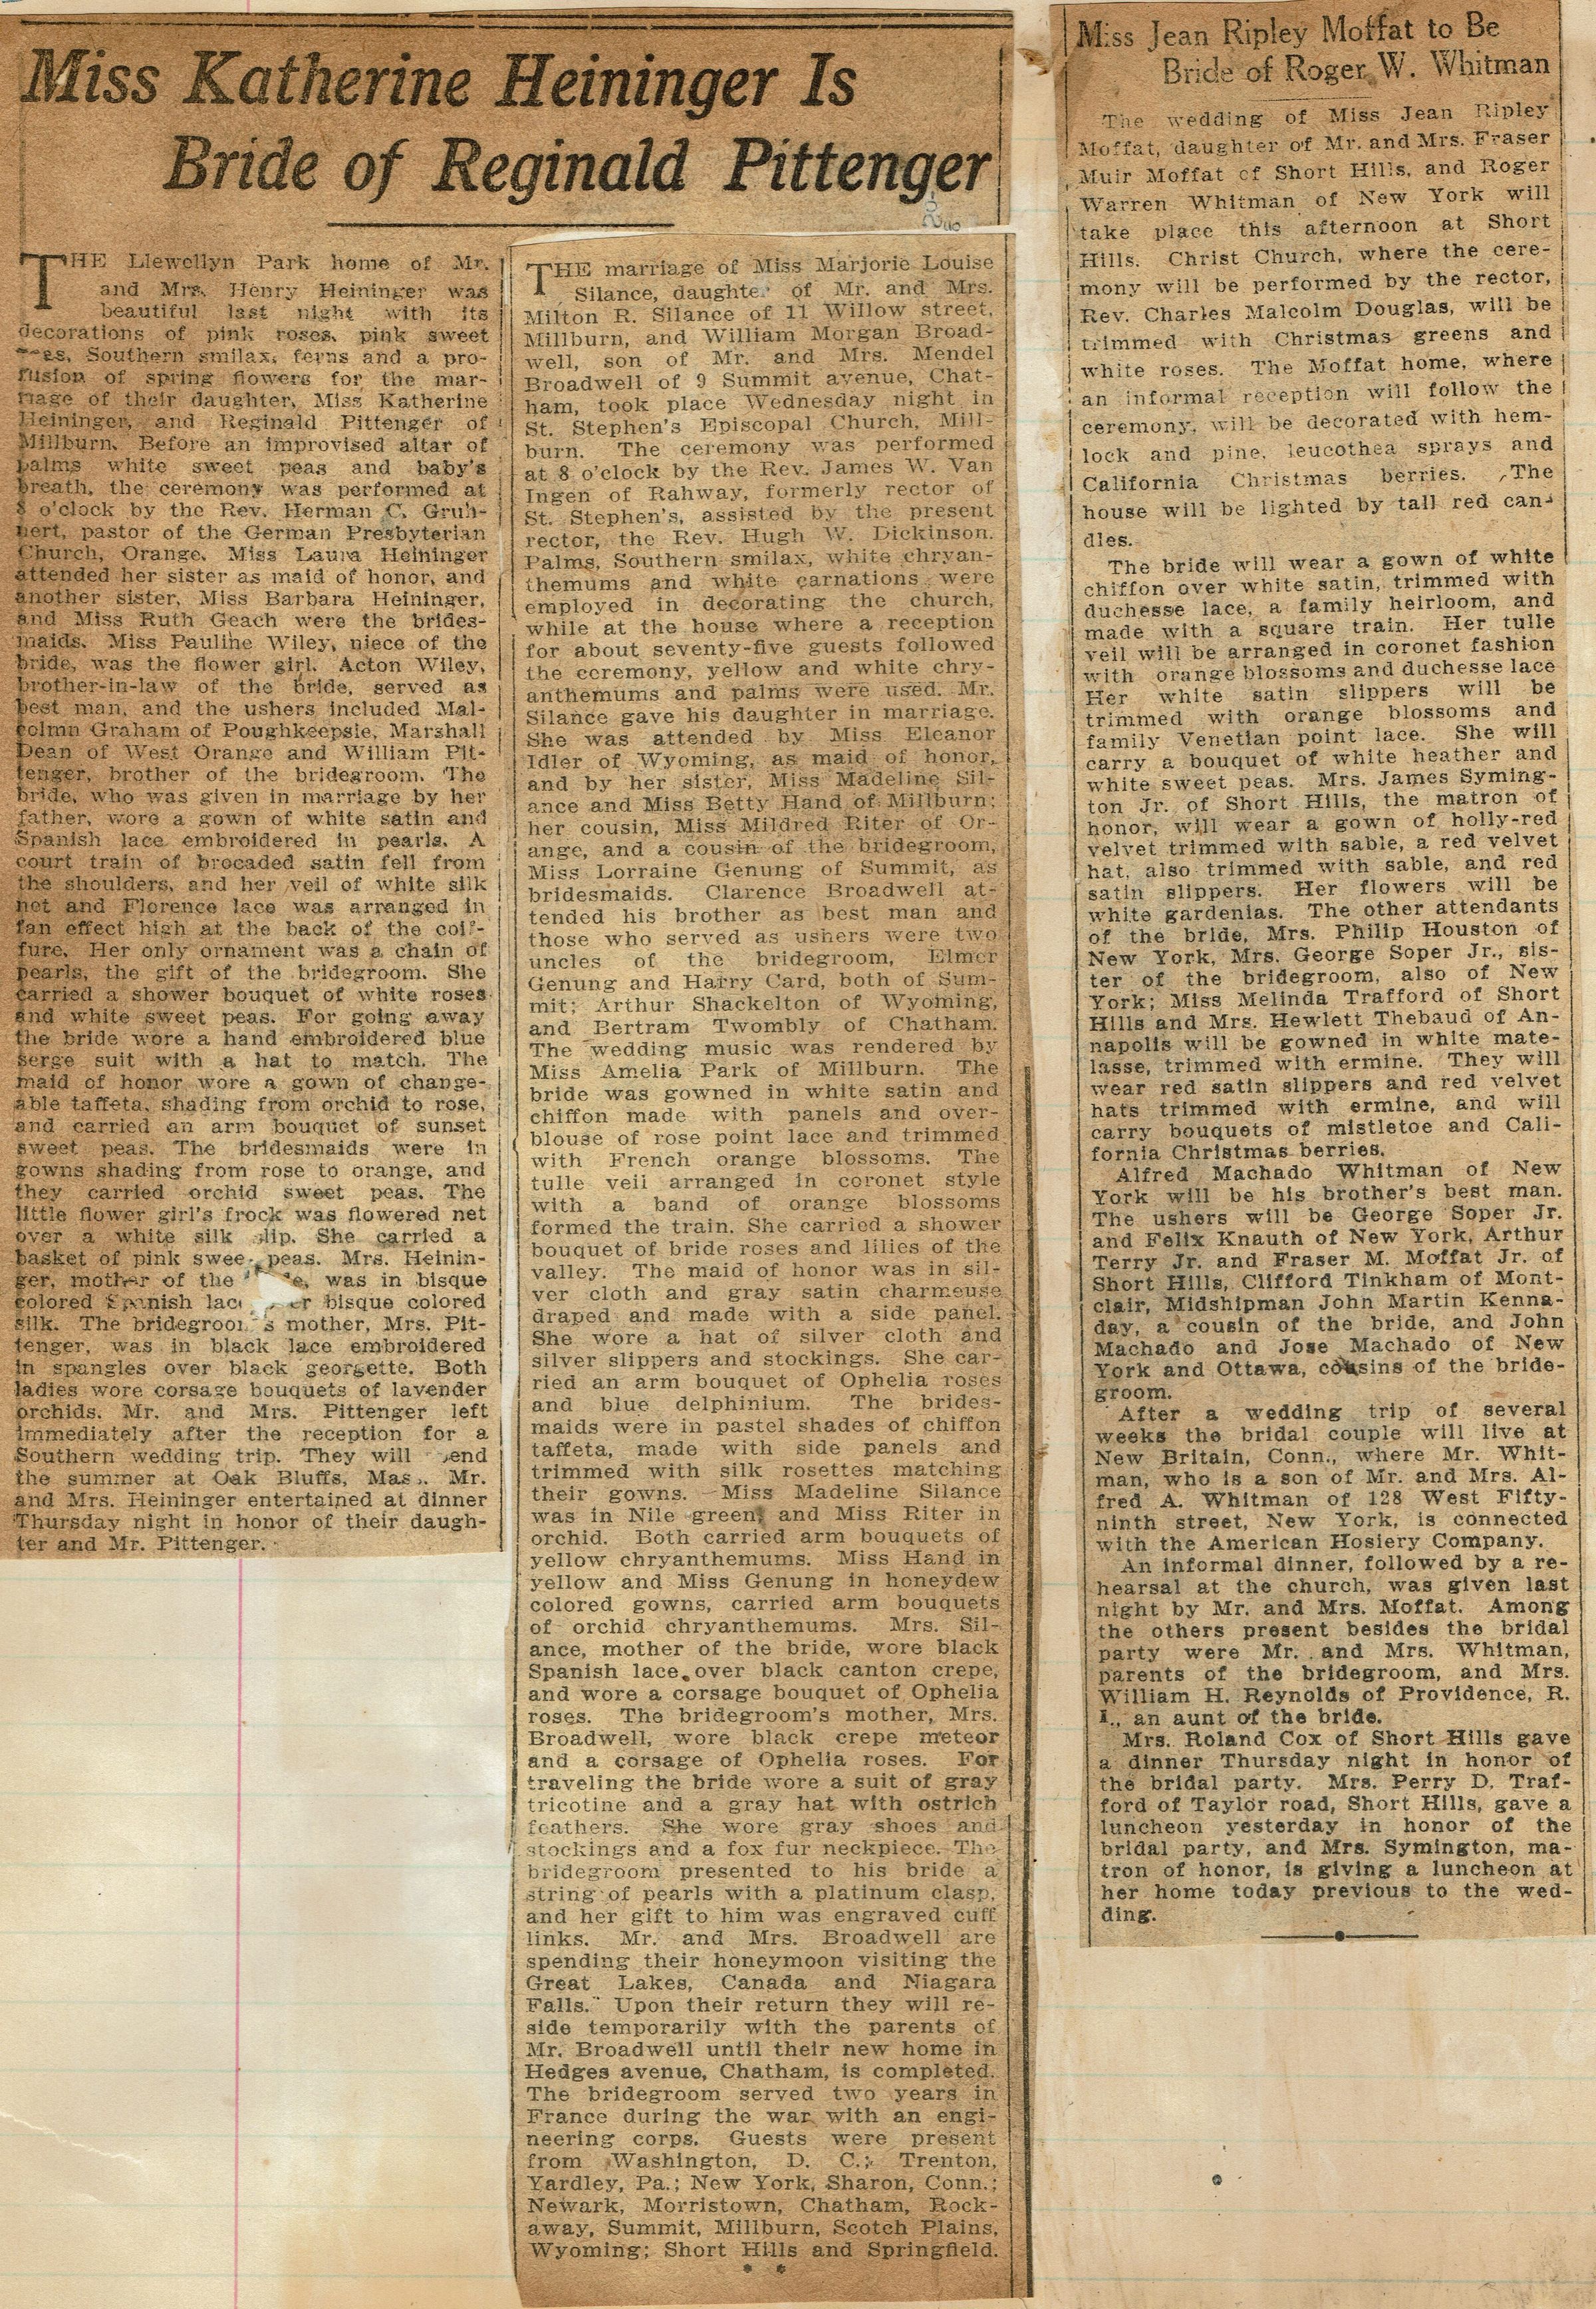 Miss Katherine Heininger Is
Bride of Reginald Pittenger
THE Llewellyn Park home of Mr.
and Mrs. Henry Heininger was
beautiful last night with its
decorations of pink roses, pink sweet
Southern smilax, ferns and a pro-
fusion of spring flowers for the mar-
riage of their daughter, Miss Katherine
Heininger, and Reginald Pittenger of
Millburn. Before an improvised altar of
palms white sweet peas and baby's
breath, the ceremony was performed at
8 o'clock by the Rev. Herman C. Gruh-
nert, pastor of the German Presbyterian
Church, Orange. Miss Laura Heininger
attended her sister as maid of honor, and
another sister, Miss Barbara Heininger,
and Miss Ruth Geach were the brides-
maids. Miss Pauline Wiley, niece of the
bride, was the flower girl. Acton Wiley,
brother-in-law of the bride, served as
best man, and the ushers included Mal-
colmn Graham of Poughkeepsie, Marshall
Dean of West Orange and William Pit-
tenger, brother of the bridegroom. The
bride, who was given in marriage by her
father, wore a gown of white satin and
Spanish lace embroidered in pearls. A
court train of brocaded satin fell from
the shoulders, and her veil of white silk
net and Florence lace was arranged in
fan effect high at the back of the coif-
fure. Her only ornament was a chain of
pearls, the gift of the bridegroom. She
carried a shower bouquet of white roses
and white sweet peas. For going away
the bride wore a hand embroidered blue
serge suit with a hat to match. The
maid of honor wore a gown of change-
able taffeta, shading from orchid to rose,
and carried an arm bouquet of sunset
sweet peas. The bridesmaids were in
gowns shading from rose to orange, and
they carried orchid sweet peas. The
little flower girl's frock was flowered net
over a white silk slip. She carried a
basket of pink sweet peas. Mrs. Heinin-
ger, mother of the was in bisque
colored Spanish lace bisque colored
silk. The bridegroom's mother, Mrs. Pit-
tenger, was in black lace embroidered
in spangles over black georgette. Both
ladies wore corsage bouquets of lavender
orchids. Mr. and Mrs. Pittenger left
immediately after the reception for a
Southern wedding trip. They will
the summer at Oak Bluffs, Mass. Mr.
and Mrs. Heininger entertained at dinner
Thursday night in honor of their daugh-
ter and Mr. Pittenger.
THE marriage of Miss Marjorie Louise
Silance, daughter of Mr. and Mrs.
Milton R. Silance of 11 Willow street,
Millburn, and William Morgan Broad-
well, son of Mr. and Mrs. Mendel
Broadwell of 9 Summit avenue, Chat-
ham, took place Wednesday night in
St. Stephen's Episcopal Church, Mill-
burn. The ceremony was performed
at 8 o'clock by the Rev. James W. Van
Ingen of Rahway, formerly rector of
St. Stephen's, assisted by the present
rector, the Rev. Hugh W. Dickinson.
Palms, Southern smilax, white chryan-
themums and white carnations were
employed in decorating the church,
while at the house where a reception
for about seventy-five guests followed
the ceremony, yellow and white chry-
anthemums and palms were used. Mr.
Silance gave his daughter in marriage.
She was attended by Miss Eleanor
Idler of Wyoming, as maid of honor,
and by her sister, Miss Madeline Sil-
ance and Miss Betty Hand of Millburn;
her cousin, Miss Mildred Riter of Or-
ange, and a cousin of the bridegroom,
Miss Lorraine Genung of Summit, as
bridesmaids. Clarence Broadwell at-
tended his brother as best man and
those who served as ushers were two
uncles of the bridegroom, Elmer
Genung and Harry Card, both of Sum-
mit; Arthur Shackelton of Wyoming,
and Bertram Twombly of Chatham.
The wedding music was rendered by
Miss Amelia Park of Millburn. The
bride was gowned in white satin and
chiffon made with panels and over-
blouse of rose point lace and trimmed
with French orange blossoms. The
tulle veil arranged in coronet style
with a band of orange blossoms
formed the train. She carried a shower
bouquet of bride roses and lilies of the
valley. The maid of honor was in sil-
ver cloth and gray satin charmeuse
draped and made with a side panel.
She wore a hat of silver cloth and
silver slippers and stockings. She car-
ried an arm bouquet of Ophelia roses
and blue delphinium. The brides-
maids were in pastel shades of chiffon
taffeta, made with side panels and
trimmed with silk rosettes matching
their gowns. Miss Madeline Silance
was in Nile green, and Miss Riter in
orchid. Both carried arm bouquets of
yellow chryanthemums. Miss Hand in
yellow and Miss Genung in honeydew
colored gowns, carried arm bouquets
of orchid chryanthemums. Mrs. Sil-
ance, mother of the bride, wore black
Spanish lace over black canton crepe,
and wore a corsage bouquet of Ophelia
roses. The bridegroom's mother, Mrs.
Broadwell, wore black crepe meteor
and a corsage of Ophelia roses. For
traveling the bride wore a suit of gray
tricotine and a gray hat with ostrich
feathers. She wore gray shoes and
stockings and a fox fur neckpiece. The
bridegroom presented to his bride a
string of pearls with a platinum clasp,
and her gift to him was engraved cuff
links. Mr. and Mrs. Broadwell are
spending their honeymoon visiting the
Great Lakes, Canada and Niagara
Falls. Upon their return they will re-
side temporarily with the parents of
Mr. Broadwell until their new home in
Hedges avenue, Chatham, is completed.
The bridegroom served two years in
France during the war with an engi-
neering corps. Guests were present
from Washington, D. C.; Trenton,
Yardley, Pa.; New York, Sharon, Conn.;
Newark, Morristown, Chatham, Rock-
away, Summit, Millburn, Scotch Plains,
Wyoming; Short Hills and Springfield.
Miss Jean Ripley Moffat to Be
Bride of Roger W. Whitman
The wedding of Miss Jean Ripley
Moffat, daughter of Mr. and Mrs. Fraser
Muir Moffat of Short Hills, and Roger
Warren Whitman of New York will
take place this afternoon at Short
Hills. Christ Church, where the cere-
mony will be performed by the rector,
Rev. Charles Malcolm Douglas, will be
trimmed with Christmas greens and
white roses. The Moffat home, where
an informal reception will follow the
ceremony, will be decorated with hem-
lock and pine, leucothea sprays and
California Christmas berries. The
house will be lighted by tall red can-
dles.
The bride will wear a gown of white
chiffon over white satin, trimmed with
duchesse lace, a family heirloom, and
made with a square train. Her tulle
veil will be arranged in coronet fashion
with orange blossoms and duchesse lace
Her white satin slippers will be
trimmed with orange blossoms and
family Venetian point lace. She will
carry a bouquet of white heather and
white sweet peas. Mrs. James Syming-
ton Jr. of Short Hills, the matron of
honor, will wear a gown of holly-red
velvet trimmed with sable, a red velvet
hat, also trimmed with sable, and red
satin slippers. Her flowers will be
white gardenias. The other attendants
of the bride, Mrs. Philip Houston of
New York, Mrs. George Soper Jr., sis-
ter of the bridegroom, also of New
York; Miss Melinda Trafford of Short
Hills and Mrs. Hewlett Thebaud of An-
napolis will be gowned in white mate-
lasse, trimmed with ermine. They will
wear red satin slippers and red velvet
hats trimmed with ermine, and will
carry bouquets of mistletoe and Cali-
fornia Christmas berries.
Alfred Machado Whitman of New
York will be his brother's best man.
The ushers will be George Soper Jr.
and Felix Knauth of New York, Arthur
Terry Jr. and Fraser M. Moffat Jr. of
Short Hills, Clifford Tinkham of Mont-
clair, Midshipman John Martin Kenna-
day, a cousin of the bride, and John
Machado and Jose Machado of New
York and Ottawa, cousins of the bride-
groom.
After a wedding trip of several
weeks the bridal couple will live at
New Britain, Conn., where Mr. Whit-
man, who is a son of Mr. and Mrs. Al-
fred A. Whitman of 128 West Fifty-
ninth street, New York, is connected
with the American Hosiery Company.
An informal dinner, followed by a re-
hearsal at the church, was given last
night by Mr. and Mrs. Moffat. Among
the others present besides the bridal
party were Mr. and Mrs. Whitman,
parents of the bridegroom, and Mrs.
William H. Reynolds of Providence, R.
I., an aunt of the bride.
Mrs. Roland Cox of Short Hills gave
a dinner Thursday night in honor of
the bridal party. Mrs. Perry D. Traf-
ford of Taylor road, Short Hills, gave a
luncheon yesterday in honor of the
bridal party, and Mrs. Symington, ma-
tron of honor, is giving a luncheon at
her home today previous to the wed-
ding.